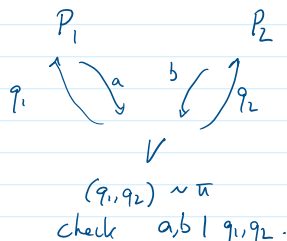 P₁ P₂
q₁ a b q₂
V
(q₁,q₂) ~ π
check a,b | q₁,q₂.